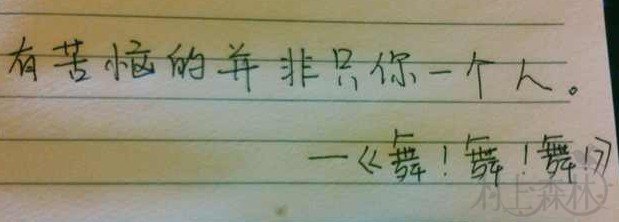 有苦恼的并非只你一个人。
—《舞！舞！舞！》
村上森林